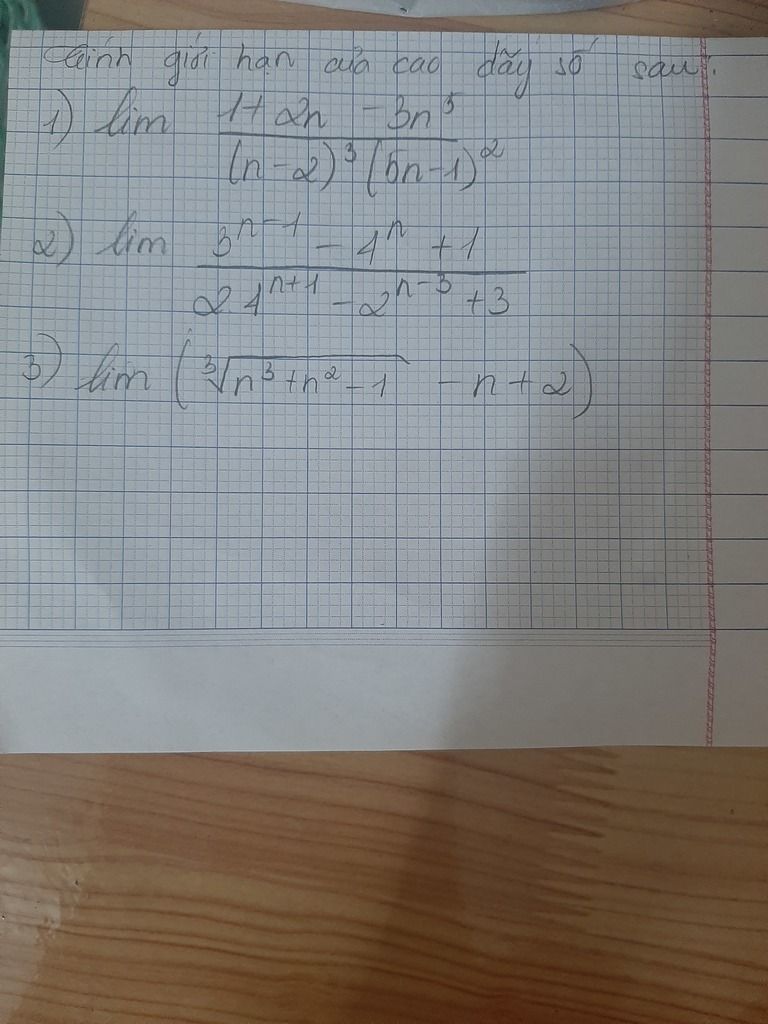 Tính giới hạn của cao dãy số sau:
1) lim (1 + 2n - 3n⁵) / ((n-2)³(5n-1)²)
2) lim (3ⁿ⁻¹ - 4ⁿ + 1) / (2.4ⁿ⁺¹ - 2ⁿ⁻³ + 3)
3) lim (∛(n³ + n² - 1) - n + 2)